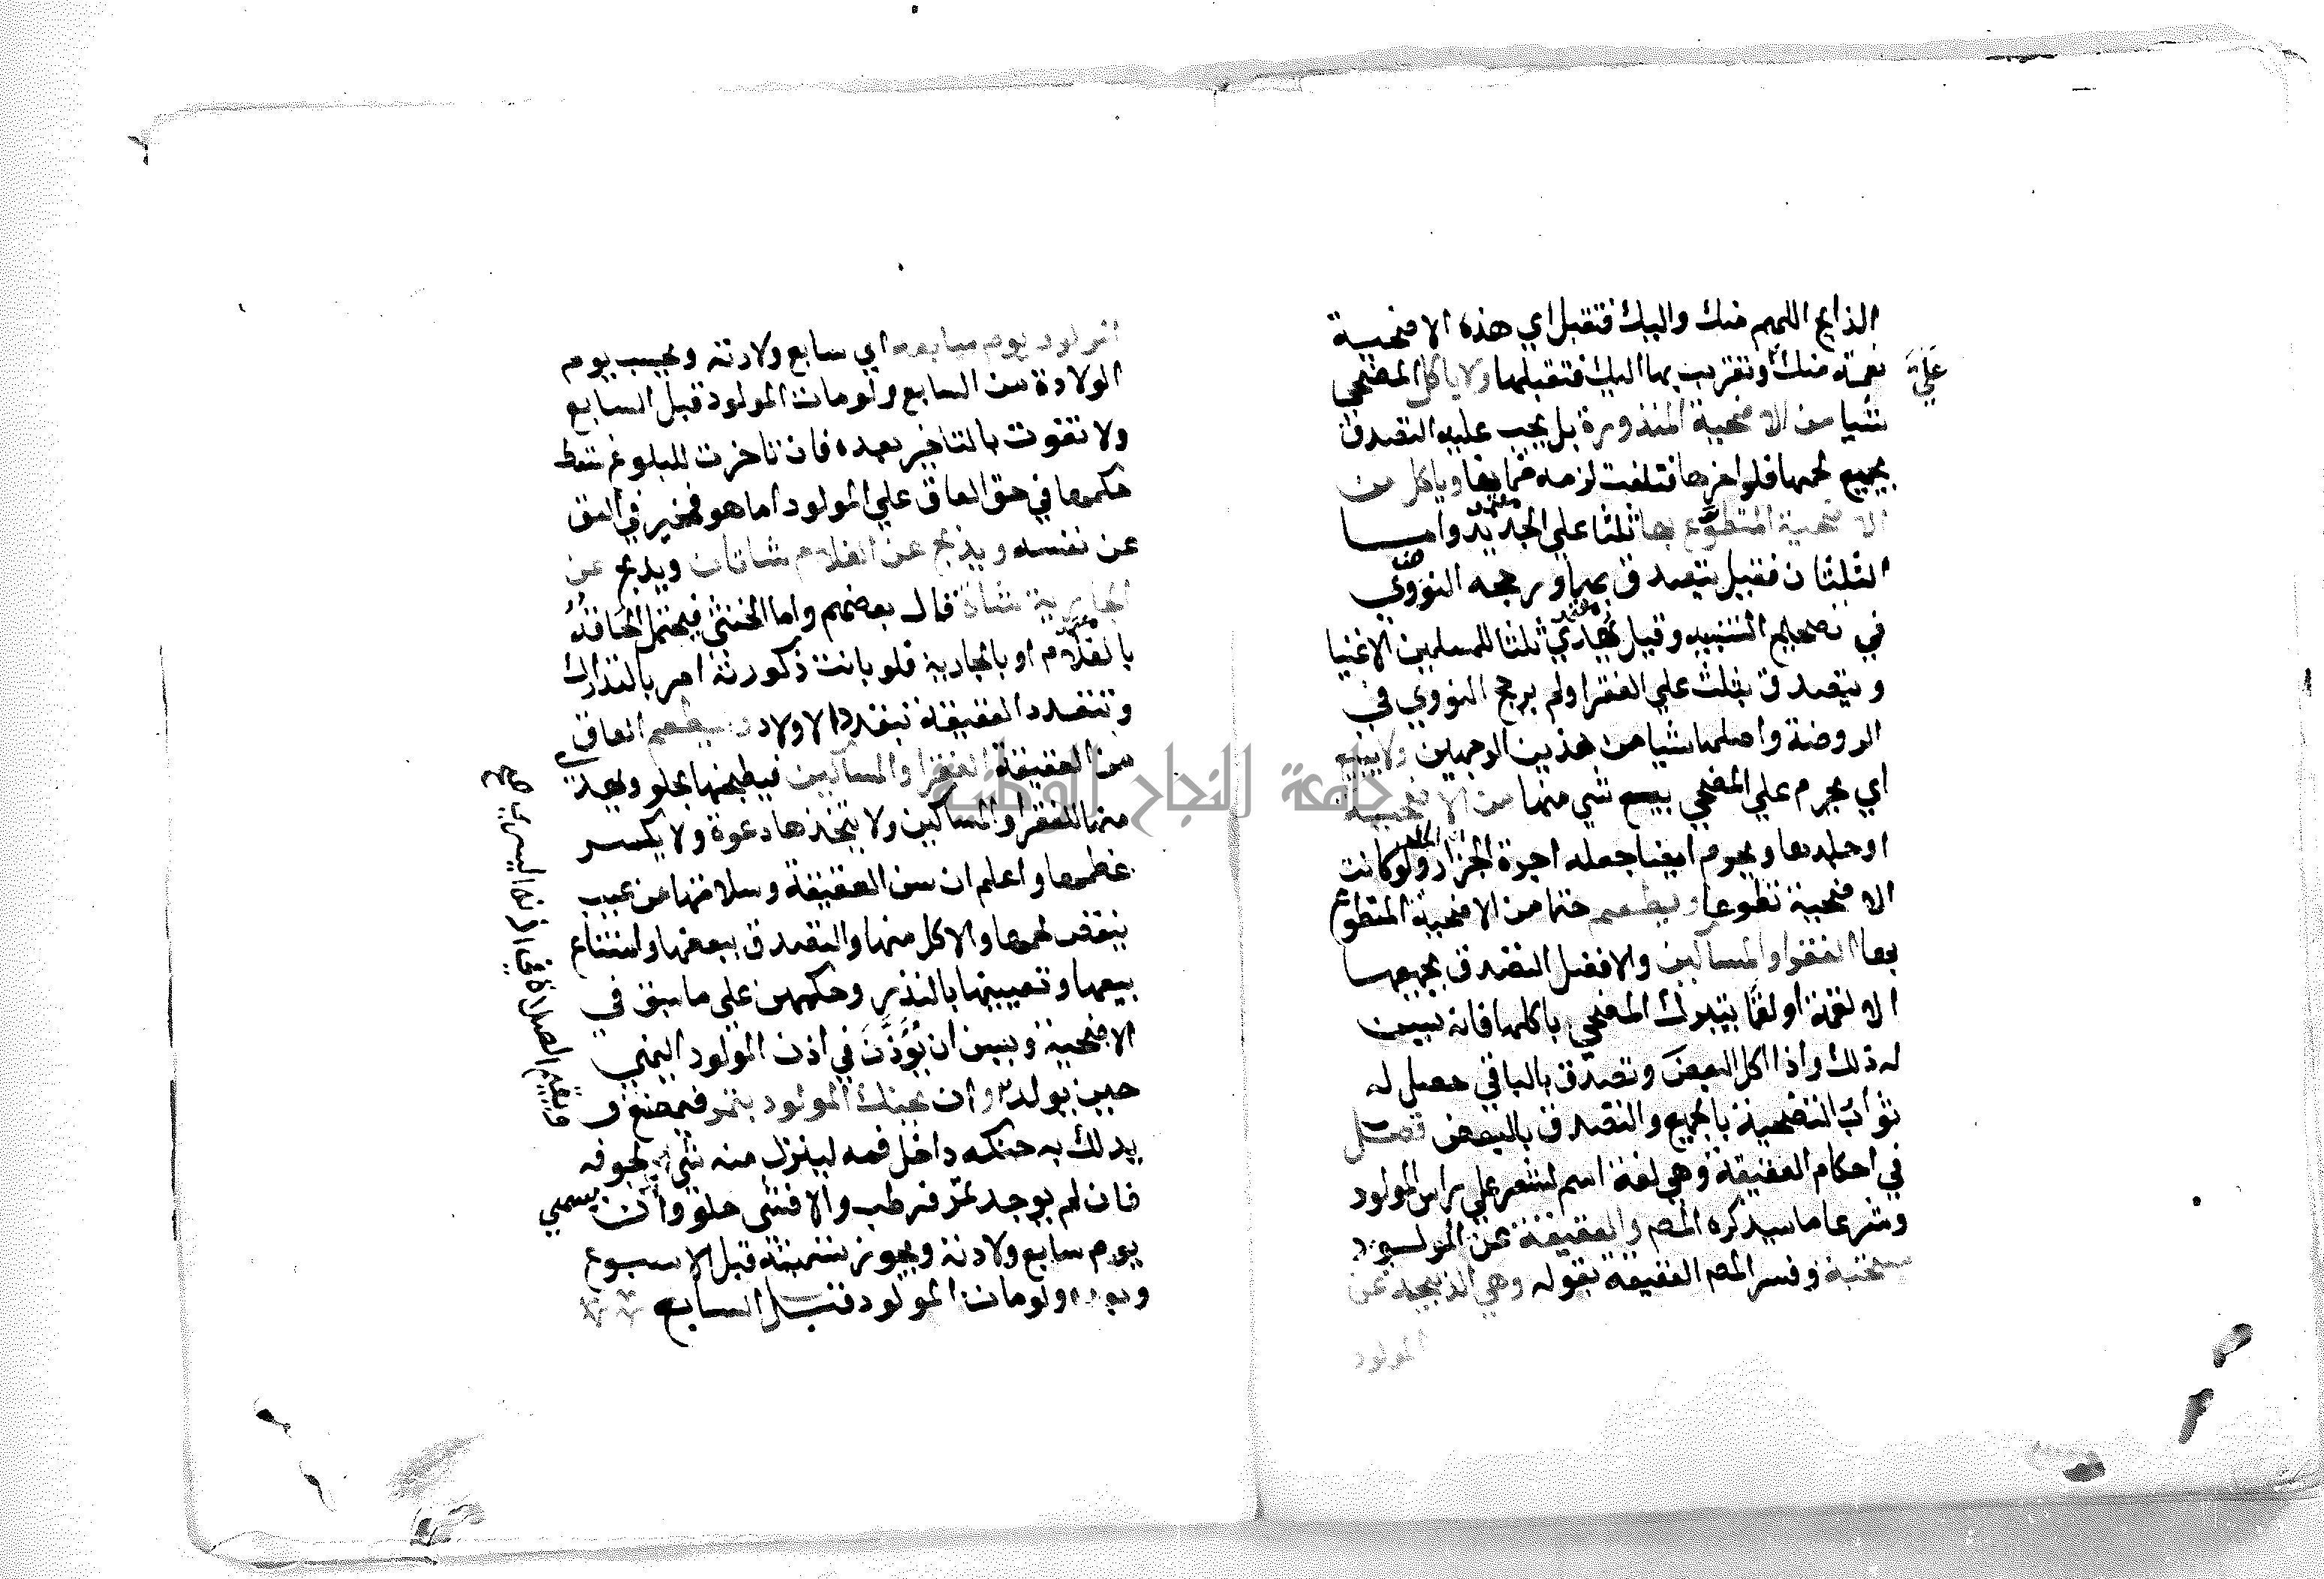 الذابح اللهم منك واليك فتقبل اي هذه الاضحية
نعمة منك وتقربت بها اليك فتقبلها ولا ياكل المضحي
عليَّ
شيا من الاضحية المنذورة بل يجب عليه التصدق
بجميع لحمها فلو اخرها فتلفت لزمه ضمانها وياكل من
الاضحية المتطوع بها ثلثا علي الجديد واما
الثلثان فقيل يتصدق بهما ورجحه النووي
في تصحيح التنبيه وقيل يهدي ثلثا للمسلمين الاغنيا
ويتصدق بثلث علي الفقرا ولم يرجح النووي في
الروضة واصلها شيا من هذين الوجهين ولا يبيع
اي يحرم علي المضحي بيع شي منها من الاضحية
او جلدها ويحرم ايضا جعله اجرة الجزار ولو كانت
الاضحية تطوعا ويطعم حتما من الاضحية المتطوع
بها الفقرا والمساكين والافضل التصدق بجميعها
الا لقمة او لقما يتبرك المضحي باكلها فانه يسن
له ذلك واذا اكل البعض وتصدق بالباقي حصل له
ثواب التضحية بالجميع والتصدق بالبعض فصل
في احكام العقيقة وهي لغة اسم لشعر علي راس المولود
وشرعا ما سيذكره المص والعقيقة عن المولود
مستحبة وفسر المص العقيقة بقوله وهي الذبيحة عن
المولود
المولود يوم سابعه اي سابع ولادته ويحسب يوم
الولادة من السابع ولو مات المولود قبل السابع
ولا تفوت بالتاخير بعده فان تاخرت للبلوغ سقط
حكمها في حق العاق علي المولود اما هو فمخير في العق
عن نفسه ويذبح عن الغلام شاتان ويذبح عن
الجارية شاة قال بعضهم واما الخنثي فيحتمل الحاقه
بالغلام او بالجارية فلو بانت ذكورته امر بالتدارك
وتتعدد العقيقة بتعدد الاولاد ويطعم العاق
من العقيقة الفقرا والمساكين فيطبخها بحلو ويهدي
منها للفقرا والمساكين ولا يتخذها دعوة ولا يكسر
عظمها واعلم ان سن العقيقة وسلامتها من عيب
ينقص لحمها والاكل منها والتصدق ببعضها وامتناع
بيعها وتعيينها بالنذر وحكمهن علي ما سبق في
الاضحية ويسن ان يؤذن في اذن المولود اليمني
حين يولد وان يحنك المولود بتمر فيمضغ و
يدلك به حنكه داخل فمه لينزل منه شي لجوفه
فان لم يوجد تمر فرطب والا فشي حلو وان يسمي
يوم سابع ولادته ويجوز تسميته قبل الاسبوع
وبعده ولو مات المولود قبل السابع
ويقيم الصلاة في اذنه اليسري صح
جامعة النجاح الوطنية